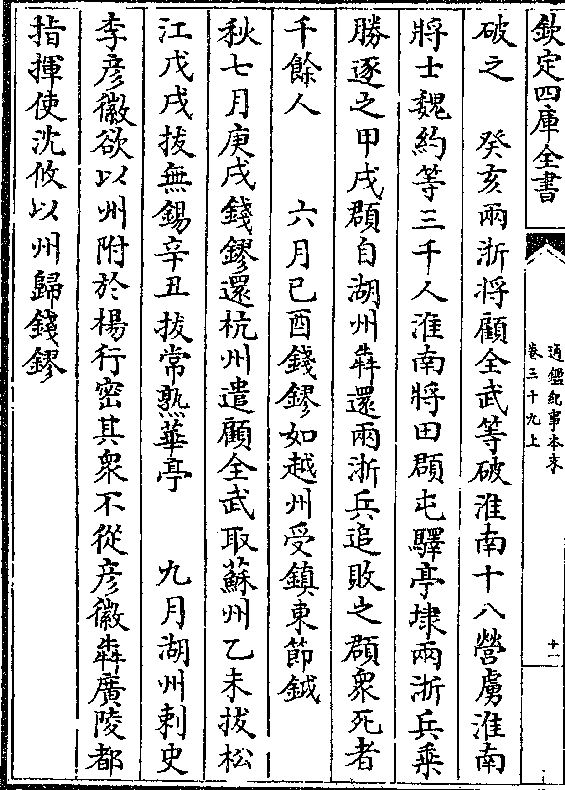 欽定四庫全書
通鑑紀事本末
卷三十九上
十一
破之　癸亥兩浙將顧全武等破淮南十八營虜淮南
將士魏約等三千人淮南將田頵屯驛亭埭兩浙兵乘
勝逐之甲戌頵自湖州犇還兩浙兵追敗之頵衆死者
千餘人　　六月己酉錢鏐如越州受鎮東節鉞
秋七月庚戌錢鏐還杭州遣顧全武取蘇州乙未拔松
江戊戌拔無錫辛丑拔常熟華亭　　九月湖州刺史
李彦徽欲以州附於楊行密其衆不從彦徽犇廣陵都
指揮使沈攸以州歸錢鏐